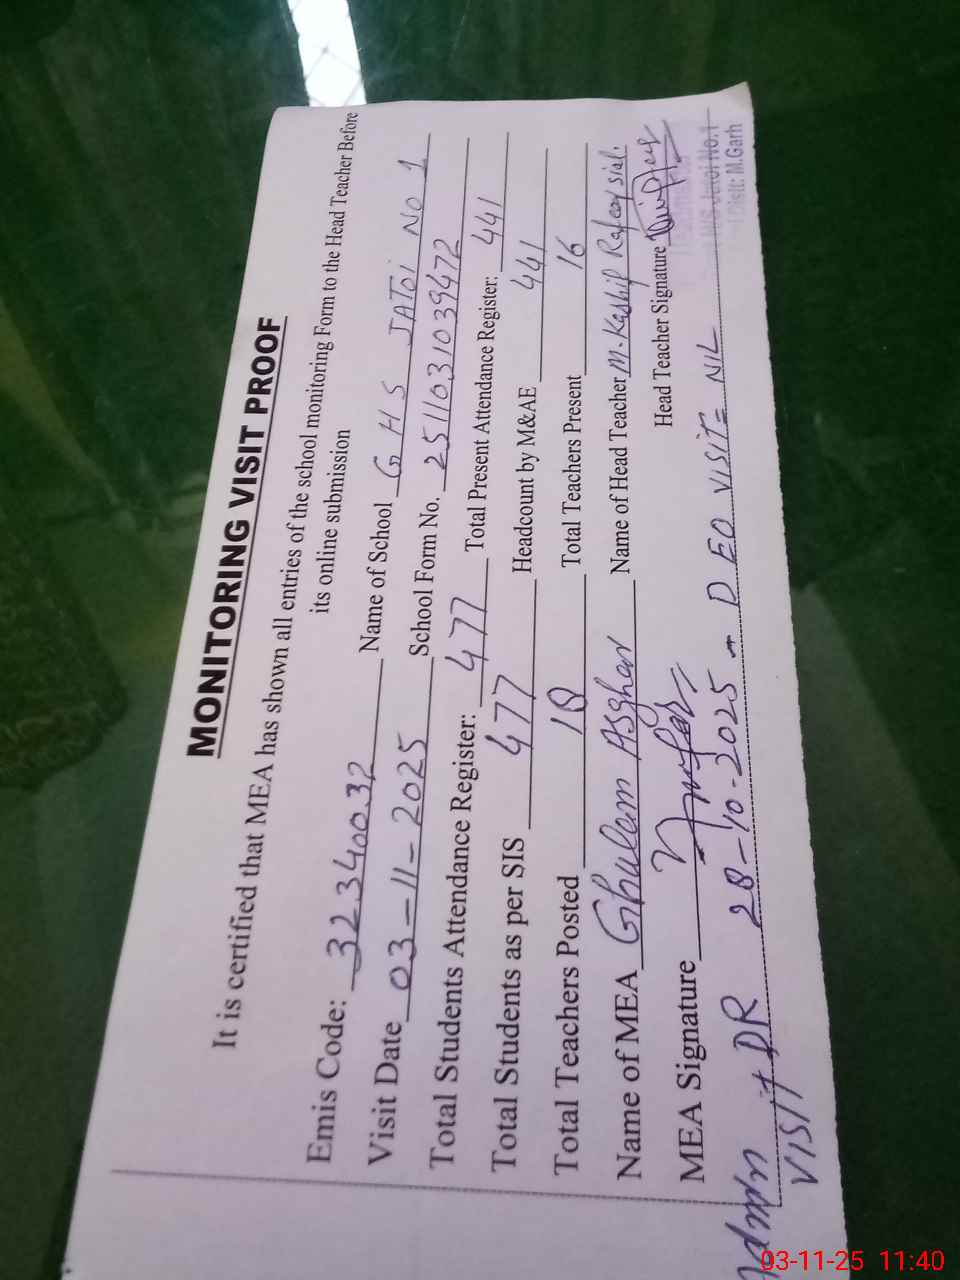 MONITORING VISIT PROOF
It is certified that MEA has shown all entries of the school monitoring Form to the Head Teacher Before
its online submission
Emis Code: 32340032 Name of School G H S JATOI NO 1
Visit Date 03-11-2025 School Form No. 2511031039472
Total Students Attendance Register: 477 Total Present Attendance Register: 441
Total Students as per SIS 477 Headcount by M&AE 441
Total Teachers Posted 18 Total Teachers Present 16
Name of MEA Ghulam Asghar Name of Head Teacher M. Kashif Rafeeq sial.
MEA Signature Head Teacher Signature
Admn + DR 28-10-2025 - DEO VISIT= NIL
VISIT
Jatoi No.1
Distt: M.Garh
03-11-25 11:40